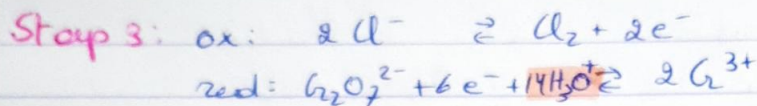 Stap 3: ox: 2 Cl⁻ ⇄ Cl₂ + 2e⁻
red: Cr₂O₇²⁻ + 6 e⁻ + 14H₃O⁺ ⇄ 2 Cr³⁺